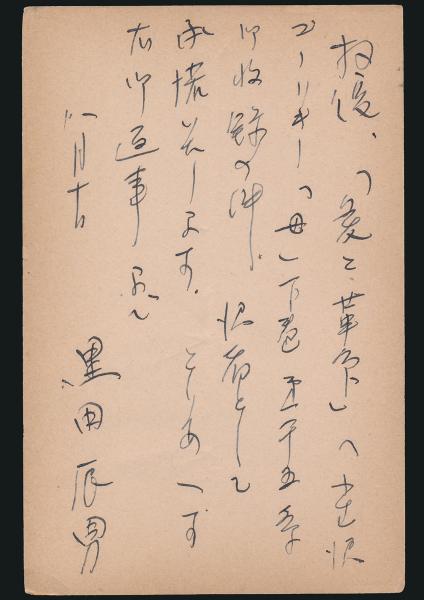 拝復、「愛と革命」へ小生訳
ゴーリキー「母」下巻 第十五章
御收録の件、訳者として
承諾します。とりあへず
右御返事まで
八月十日
黒田辰男